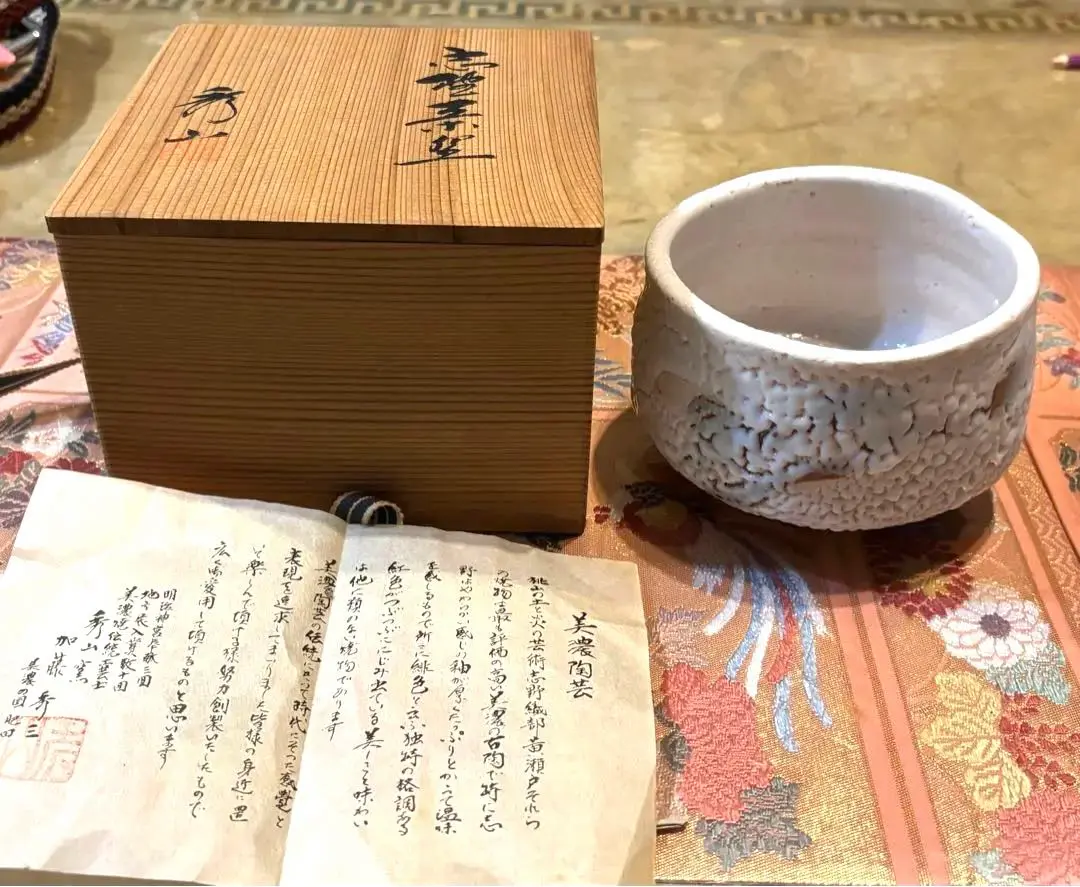 志野茶盌
秀山
美濃陶芸
桃山の土と火の芸術志野織部黄瀬戸それら
の焼物は最も評価の高い美濃の古陶で特に志
野はやわらかい感じの釉が厚くたっぷりとかかって温味
を感じるもので所々に緋色と云ふ独特の格調ある
紅色がつぶつぶににじみ出ている美しさと味わい
は他に類のない焼物であります
美濃陶芸の伝統によって時代にそった感覚と
表現を追求してまいりました皆様の身近に置
いて楽しんで頂けます様努力創製いたしたもので
広く御愛用して頂けるものと思います
明治神宮奉献三回
地方展入賞数十回
美濃焼伝統工芸士
秀山窯
加藤秀三
美濃の国肥田